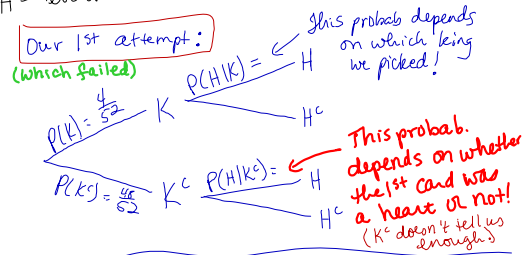 Our 1st attempt:
(which failed)
This probab depends
on which king
we picked!
P(K) = 4/52
K
P(H|K) =
H
Hᶜ
P(Kᶜ) = 48/52
Kᶜ
P(H|Kᶜ) =
H
Hᶜ
This probab.
depends on whether
the 1st card was
a heart or not!
(Kᶜ doesn't tell us
enough.)